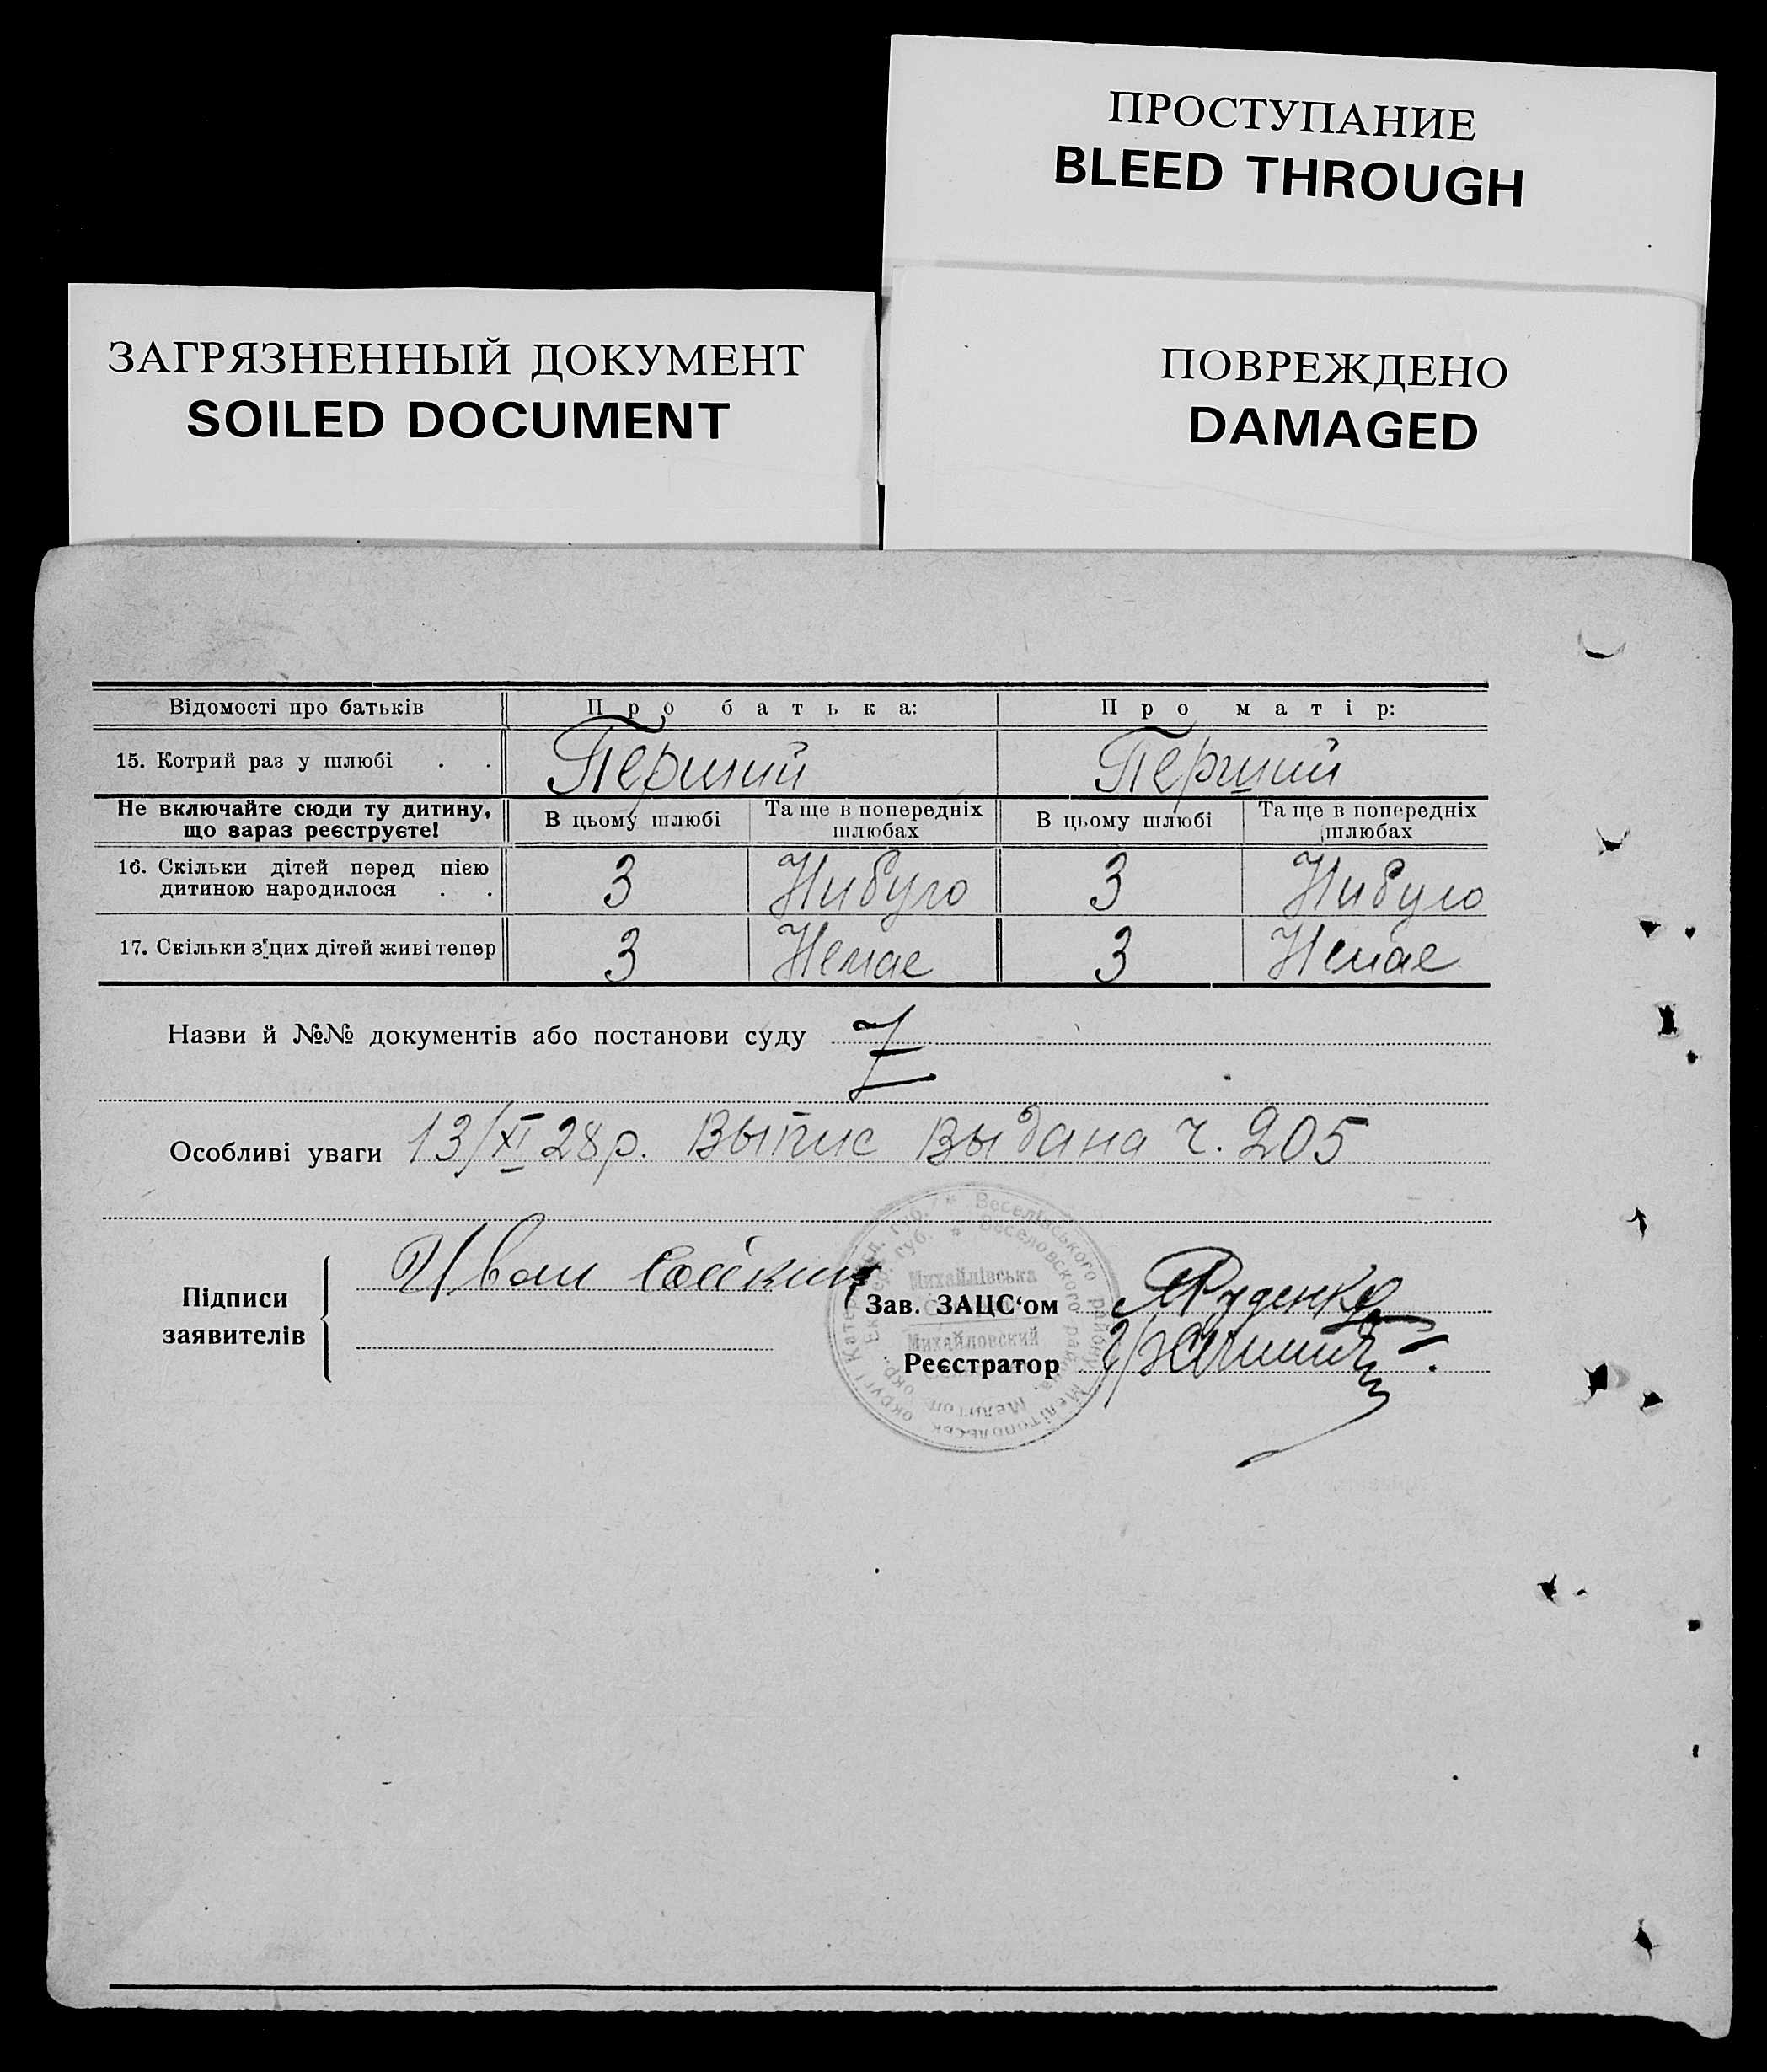 ПРОСТУПАНИЕ
BLEED THROUGH
ЗАГРЯЗНЕННЫЙ ДОКУМЕНТ
SOILED DOCUMENT
ПОВРЕЖДЕНО
DAMAGED
Відомості про батьків Про батька: Про матір:
15. Котрий раз у шлюбі . . Перший Перший
Не включайте сюди ту дитину, що зараз реєструєте! В цьому шлюбі Та ще в попередніх шлюбах В цьому шлюбі Та ще в попередніх шлюбах
16. Скільки дітей перед цією дитиною народилося . . 3 Нибуло 3 Нибуло
17. Скільки з'цих дітей живі тепер 3 Немає 3 Немає
Назви й №№ документів або постанови суду
Особливі уваги 13/XI 28р. Выпис Выдана ч. 205
Підписи заявителів Иван
Зав. ЗАЦС‘ом Руденко
Реєстратор
Веселівського району Мелітопольськ округі Катеринослд. губ.
Веселовского района, Мелитоп. окр. Екатер. губ.
Михайлівська
Михайловский